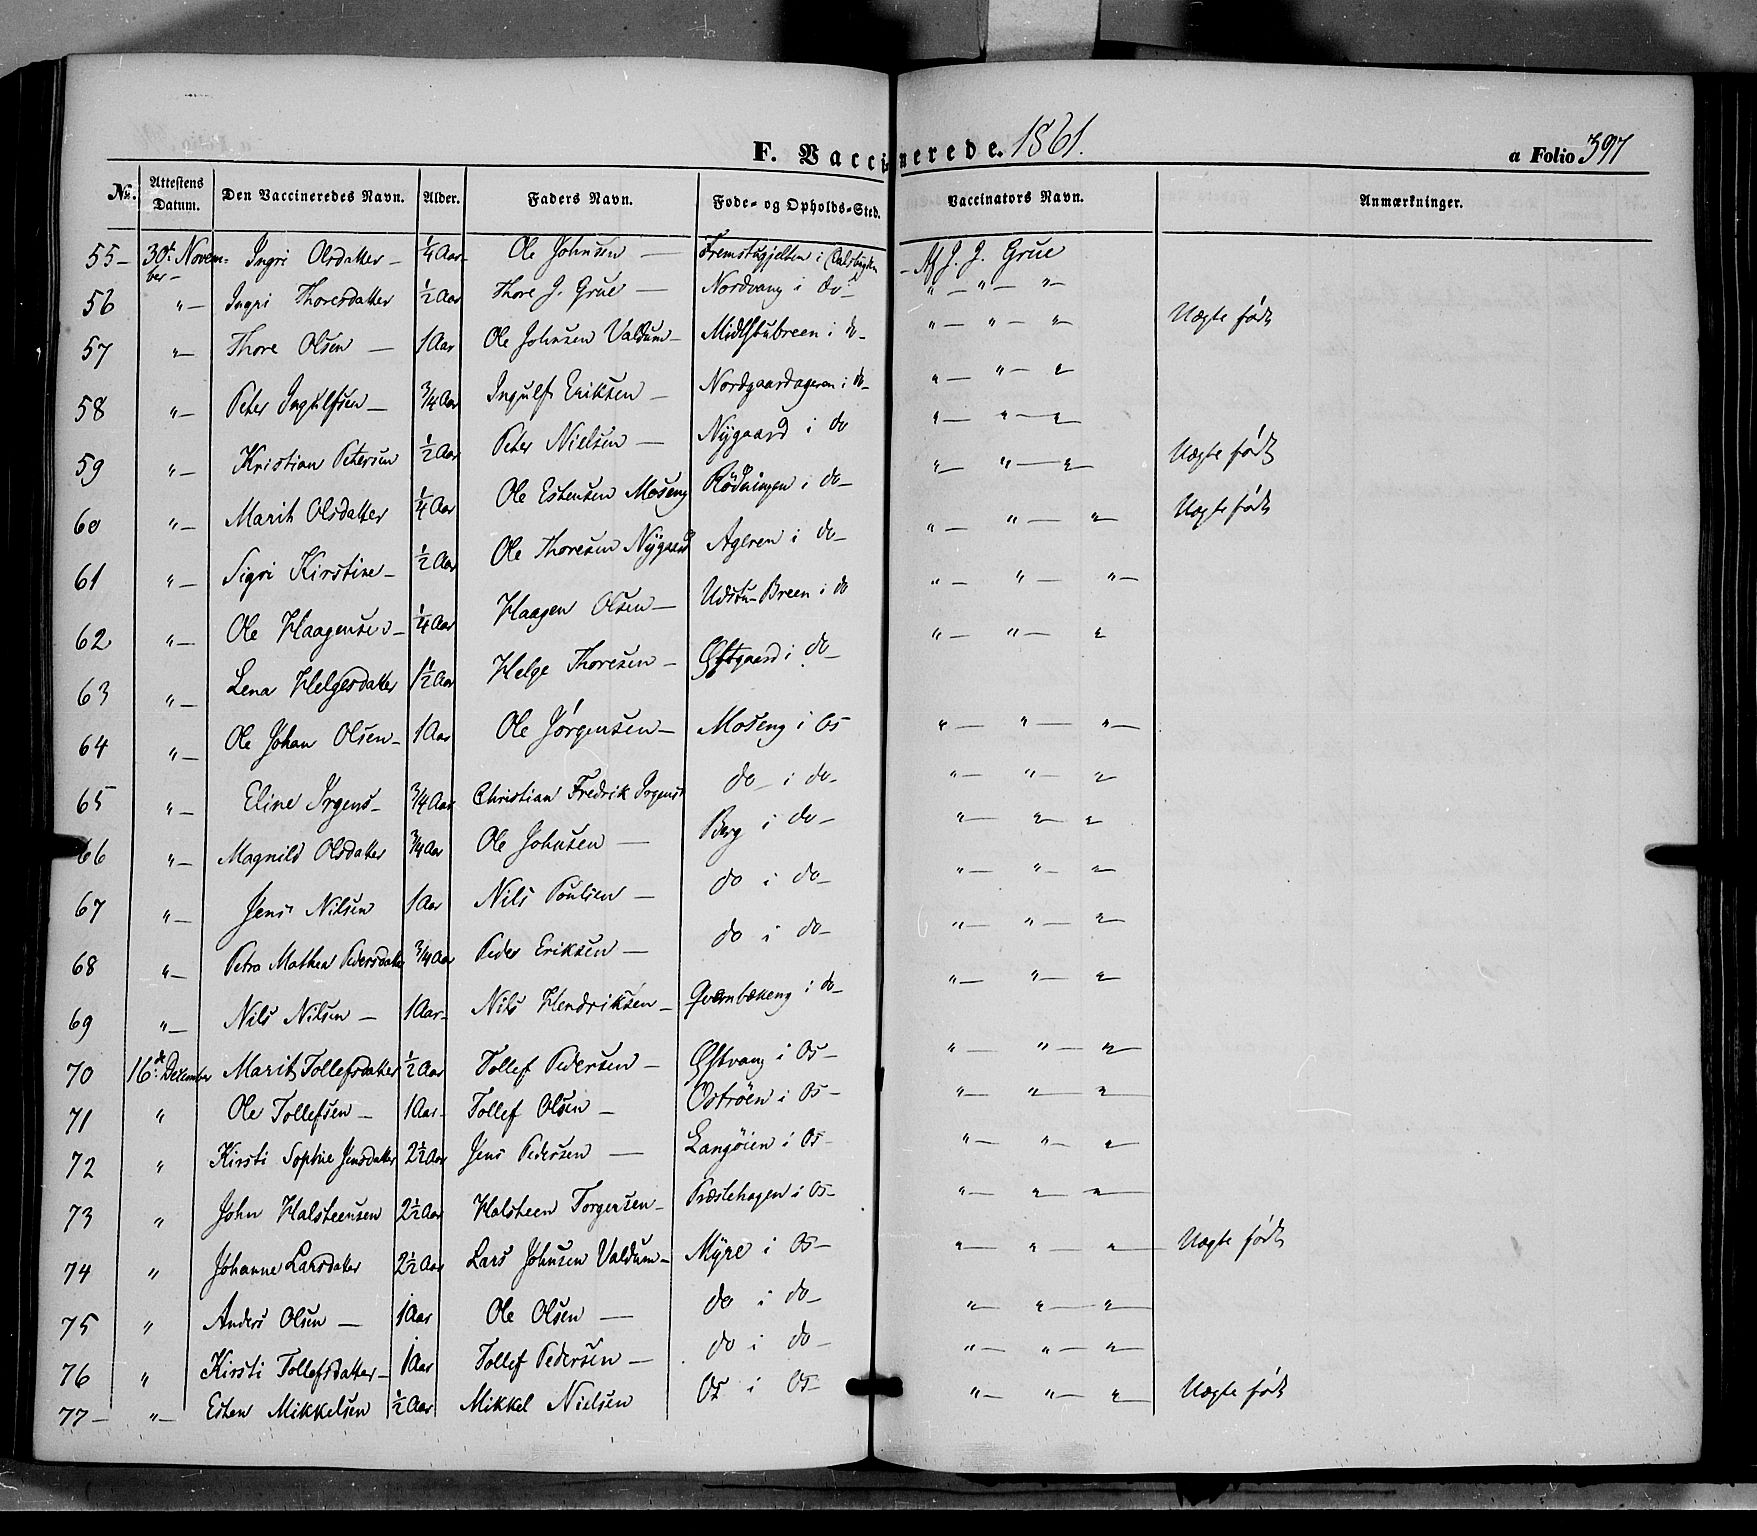 F. Vaccinerede. 1861. a Folio 397
No. Attestens Datum. Den Vaccineredes Navn. Alder. Faders Navn. Føde- og Opholds-Sted. Vaccinators Navn. Anmærkninger.
55 – 30t Novem- ber – Ingri Olsdatter – 1/4 Aar – Ole Johnsen — i – Af J. J. Grue
56 " – Ingri Thoresdatter 1/2 Aar Thore J. Grue — Nordvang i do – " – " – " –
57 " – Thore Olsen — 1 Aar Ole Johnsen Valdum – Midtstubreen i do – " – " – " Uægte født
58 " – Peter Ingulfsen – 3/4 Aar Ingulf Eriksen — Nordgaardageren i do – " – " – "
59 " – Kristian Petersen 1/2 Aar Peter Nielsen — Nygaard i do " – " – "
60 " – Marit Olsdatter 1/4 Aar Ole Estensen Moseng Rödningen i do – " – " – " Uægte født
61 " – Sigri Kirstine – 1/2 Aar Ole Thoresen Nygaard Ageren i do – " – " – " Uægte født
62 " – Ole Haagensen – 1/4 Aar Haagen Olsen — Udstu-Breen i do " – " – " –
63 " – Lena Helgesdatter 1 1/2 Aar Helge Thoresen – Østgaard i do – " – " – "
64 " – Ole Johan Olsen – 1 Aar Ole Jørgensen – Moseng i Os " – " – " –
65 " – Eline Irgens – 3/4 Aar Christian Fredrik Irgens do – i do – " – " – "
66 " – Magnild Olsdatter 3/4 Aar Ole Johnsen — Berg i do – " – " – "
67 " – Jens Nilsen 1 Aar Nils Poulsen — do i do – " – " – "
68 " – Petra Mathea Pedersdatter 3/4 Aar Peder Eriksen — do i do – " – " – "
69 " – Nils Nilsen – 1 Aar – Nils Hendriksen – Qvernbækeng i do – " – " – "
70 16de December Marit Tollefsdatter 1/2 Aar Tollef Pedersen – Østvang i Os – " – " – "
71 " Ole Tollefsen – 1 Aar – Tollef Olsen – Oströen i Os – " – " – "
72 " Kirsti Sophie Jensdatter 2 1/2 Aar Jens Pedersen — Langöien i Os – " – " – "
73 " John Halsteensen 2 1/2 Aar Halsteen Torgersen – Præstehagen i Os – " – " – "
74 " Johanne Larsdatter 2 1/2 Aar Lars Johnsen Valdum – Myre i Os – " – " – " Uægte født
75 " Anders Olsen — 1 Aar Ole Olsen — do i do – " – " – "
76 " Kirsti Tollefsdatter – 1 Aar Tollef Pedersen — do i do – " – " – "
77 – " – Esten Mikkelsen 1/2 Aar Mikkel Nielsen Os i Os – " – " – " Uægte født